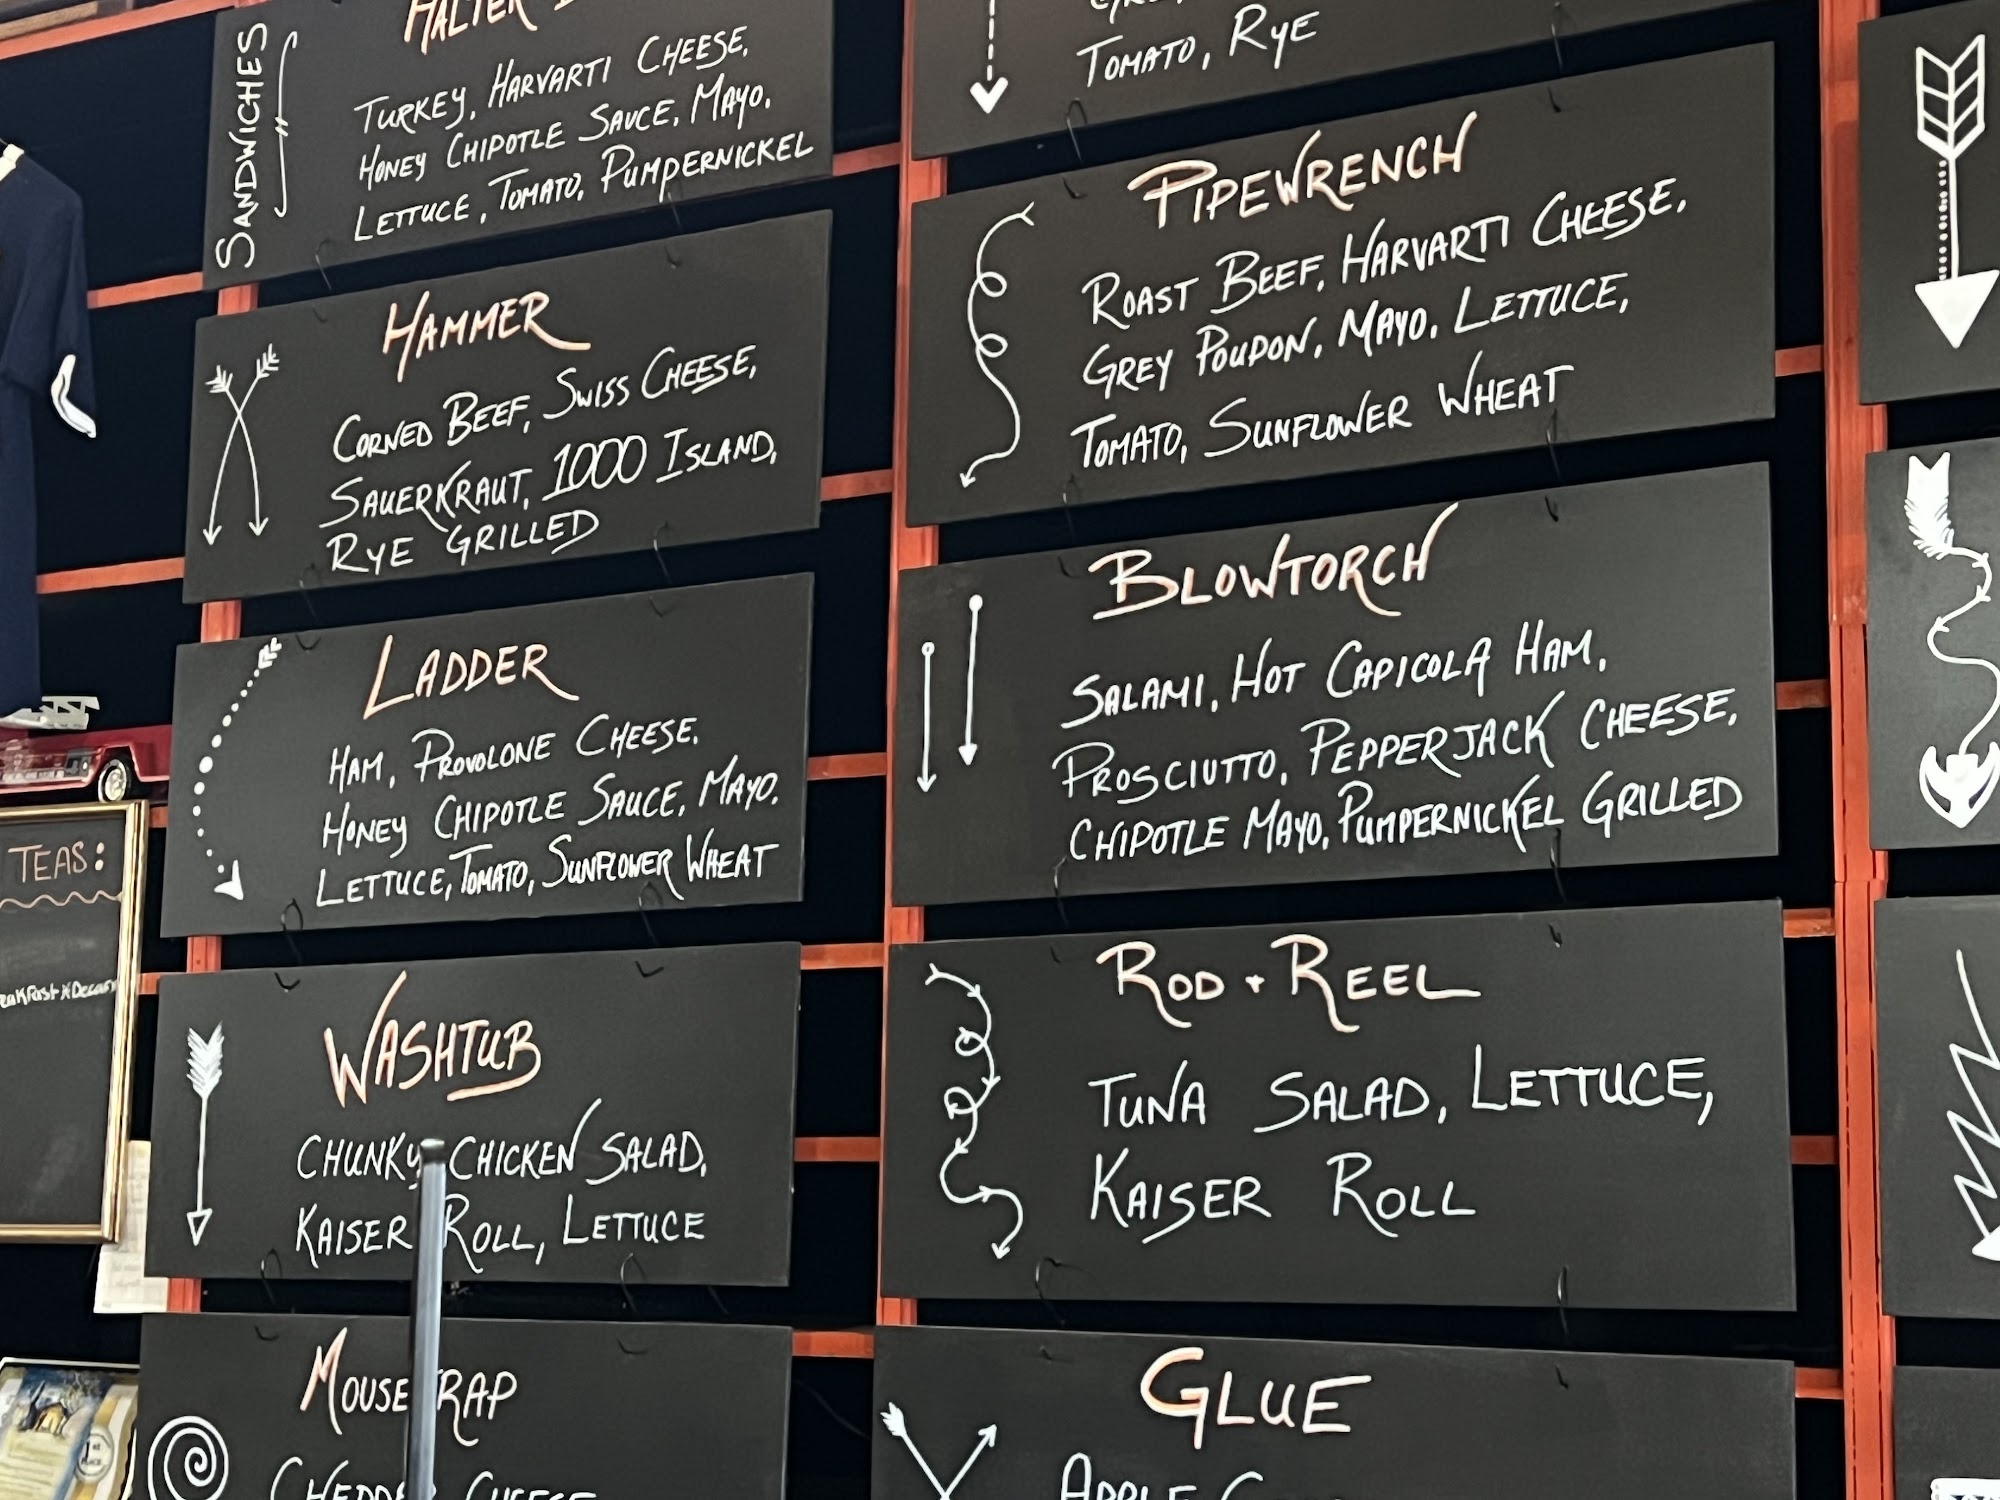 SANDWICHES
HALTER
TURKEY, HARVARTI CHEESE,
HONEY CHIPOTLE SAUCE, MAYO,
LETTUCE, TOMATO, PUMPERNICKEL
HAMMER
CORNED BEEF, SWISS CHEESE,
SAUERKRAUT, 1000 ISLAND,
RYE GRILLED
LADDER
HAM, PROVOLONE CHEESE,
HONEY CHIPOTLE SAUCE, MAYO,
LETTUCE, TOMATO, SUNFLOWER WHEAT
WASHTUB
CHUNKY CHICKEN SALAD,
KAISER ROLL, LETTUCE
MOUSETRAP
CHEDDAR CHEESE
TOMATO, RYE
PIPEWRENCH
ROAST BEEF, HARVARTI CHEESE,
GREY POUPON, MAYO, LETTUCE,
TOMATO, SUNFLOWER WHEAT
BLOWTORCH
SALAMI, HOT CAPICOLA HAM,
PROSCIUTTO, PEPPERJACK CHEESE,
CHIPOTLE MAYO, PUMPERNICKEL GRILLED
ROD + REEL
TUNA SALAD, LETTUCE,
KAISER ROLL
GLUE
APPLE
TEAS: